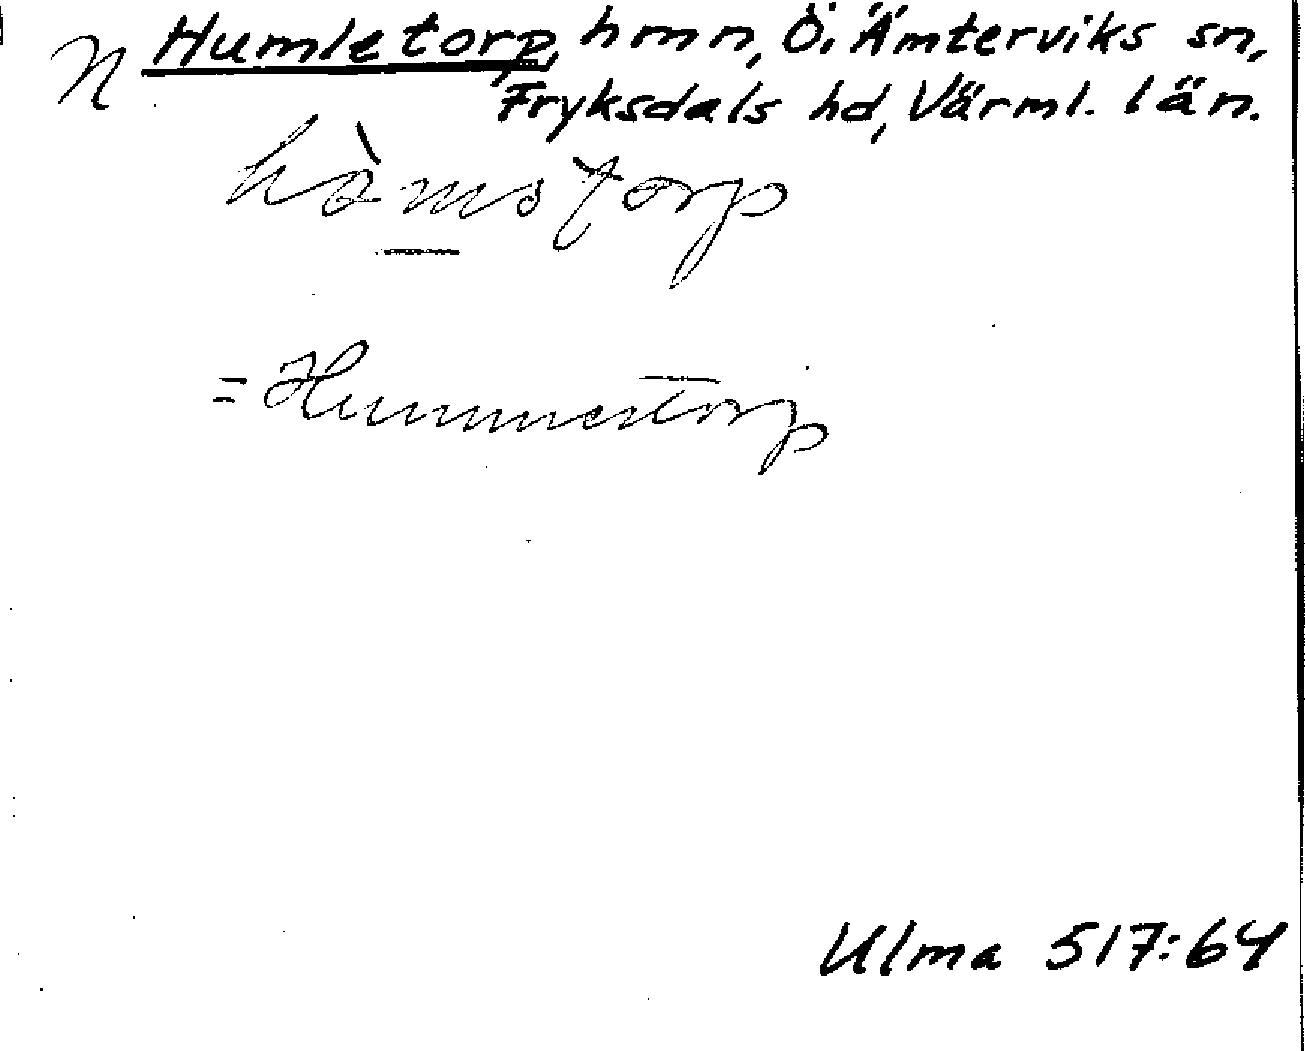 N Humletorp, hmn, Ö. Ämterviks sn,
Fryksdals hd, Värml. län.
hòmstorp
= Hummertorp
Ulma 517:64